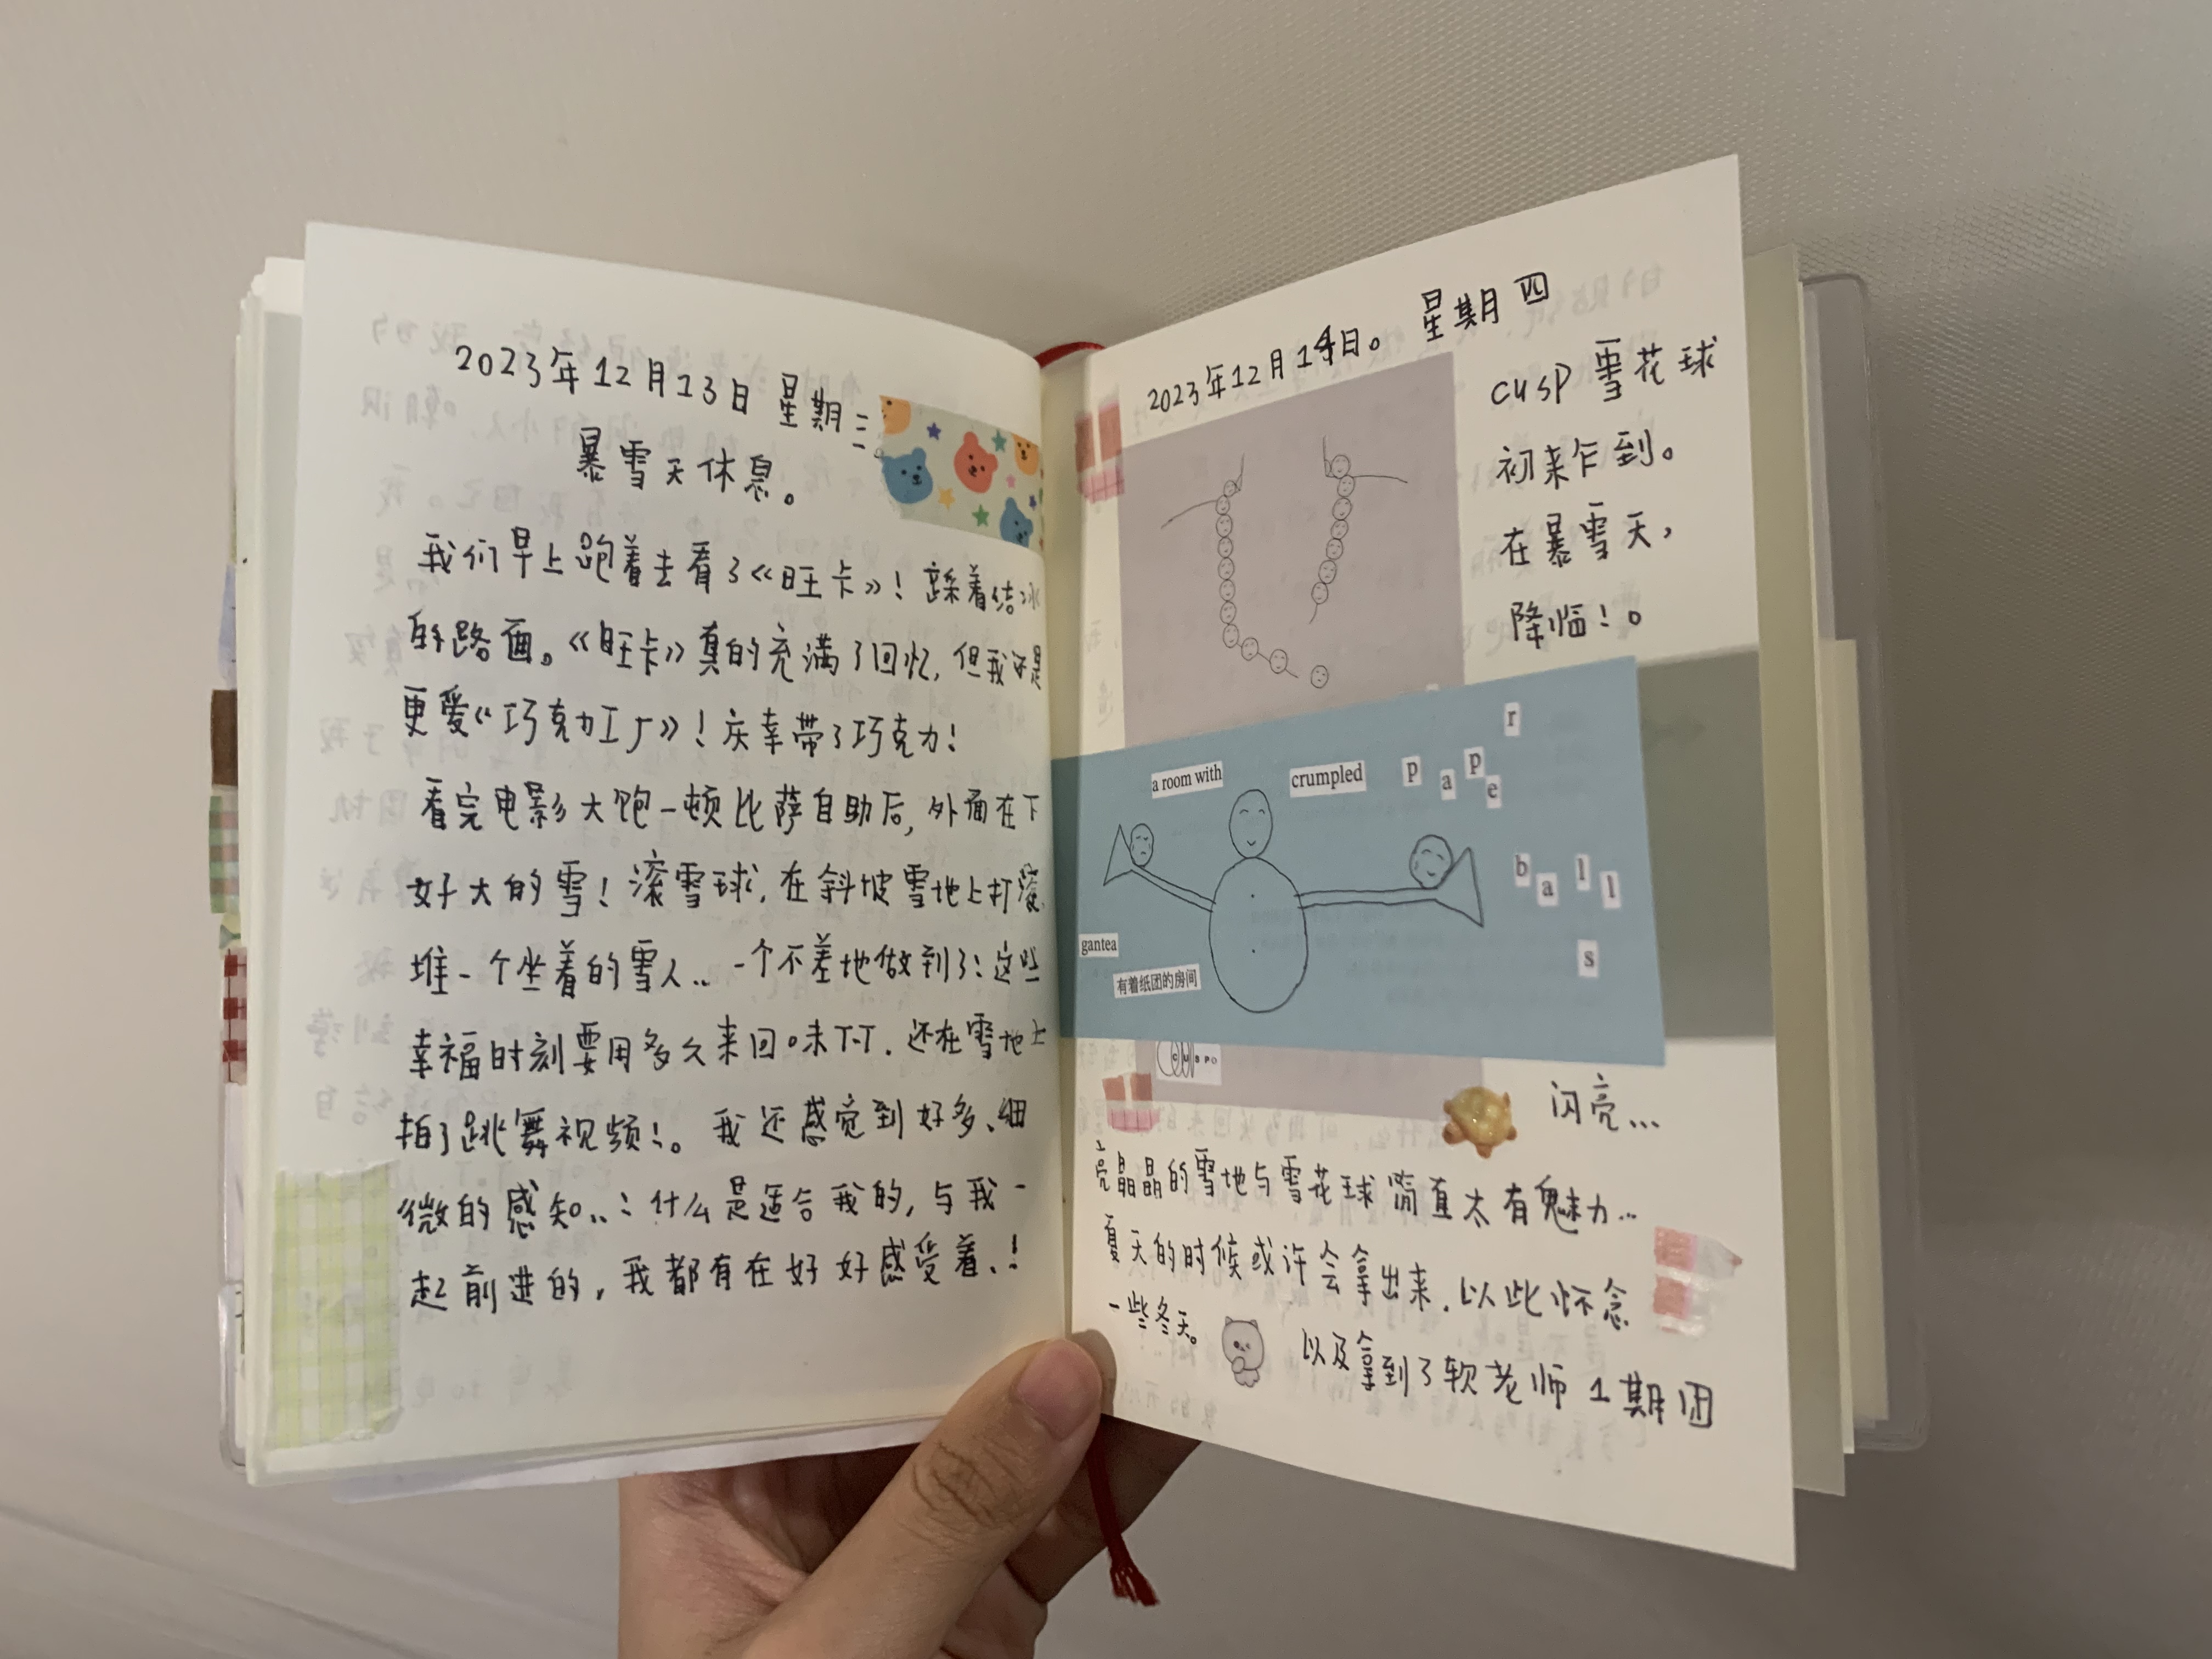 2023年12月13日 星期三
暴雪天休息。
我们早上跑着去看了《旺卡》！踩着结冰
的路面。《旺卡》真的充满了回忆，但我还是
更爱《巧克力工厂》！庆幸带了巧克力！
看完电影大饱一顿比萨自助后，外面在下
好大的雪！滚雪球，在斜坡雪地上打滚，
堆一个坐着的雪人.. 一个不差地做到了：这些
幸福时刻要用多久来回味T-T. 还在雪地上
拍了跳舞视频！。我还感觉到好多、细
微的感知..：什么是适合我的，与我一
起前进的，我都有在好好感受着、！
2023年12月14日。 星期四
cusp 雪花球
初来乍到。
在暴雪天，
降临！。
a room with crumpled paper
balls
gantea
有着纸团的房间
CUSPO
闪亮...
亮晶晶的雪地与雪花球简直太有魅力...
夏天的时候或许会拿出来，以此怀念
一些冬天。
以及拿到了软老师1期团